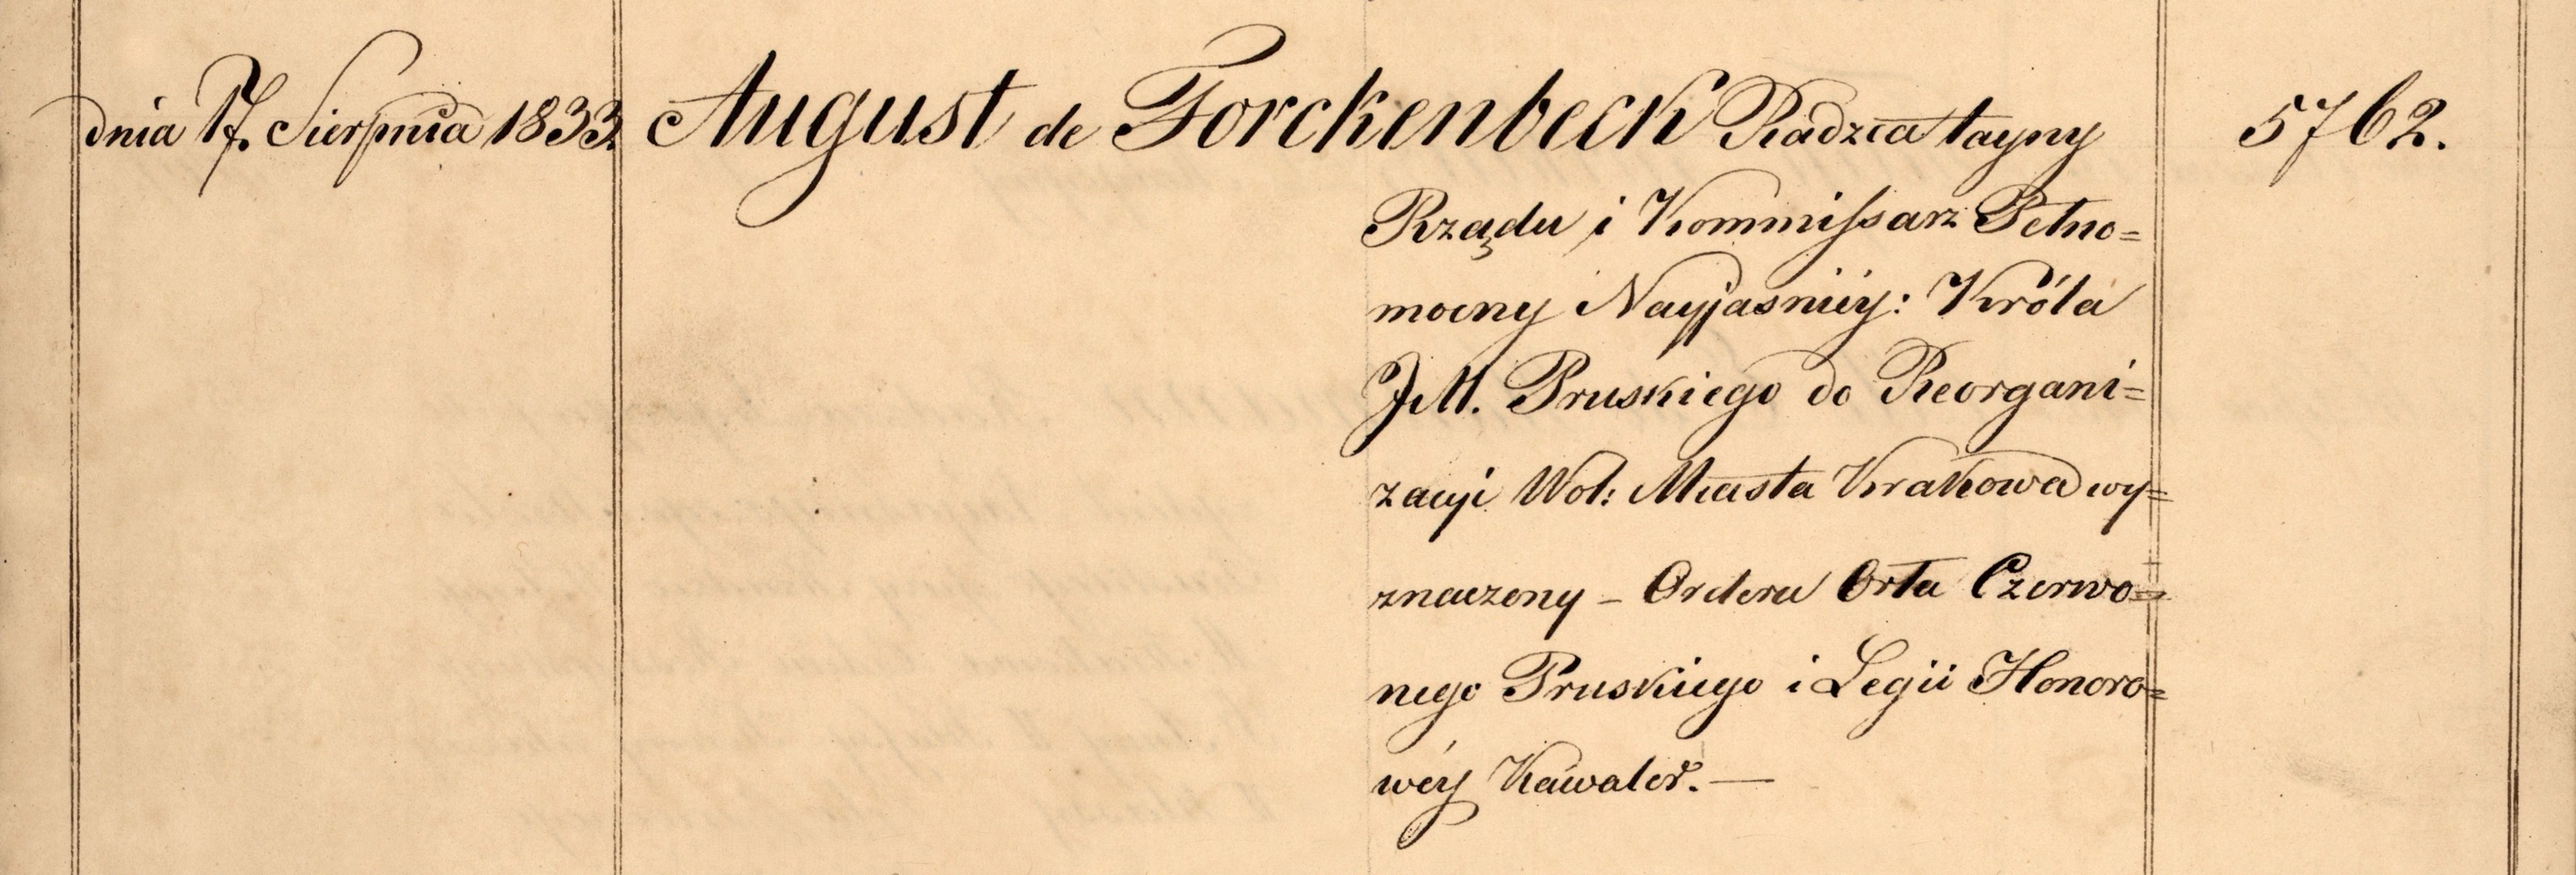 dnia 17. Sierpnia 1833. August de Forckenbeck Radzca tayny 5762.
Rządu i Kommissarz Pełno=
mocny Nayjaśniéy: Króla
JM. Pruskiego do Reorgani=
zacyi Wol: Miasta Krakowa wy=
znaczony – Orderu Orła Czerwo=
nego Pruskiego i Legii Honoro=
wéy Kawaler. —